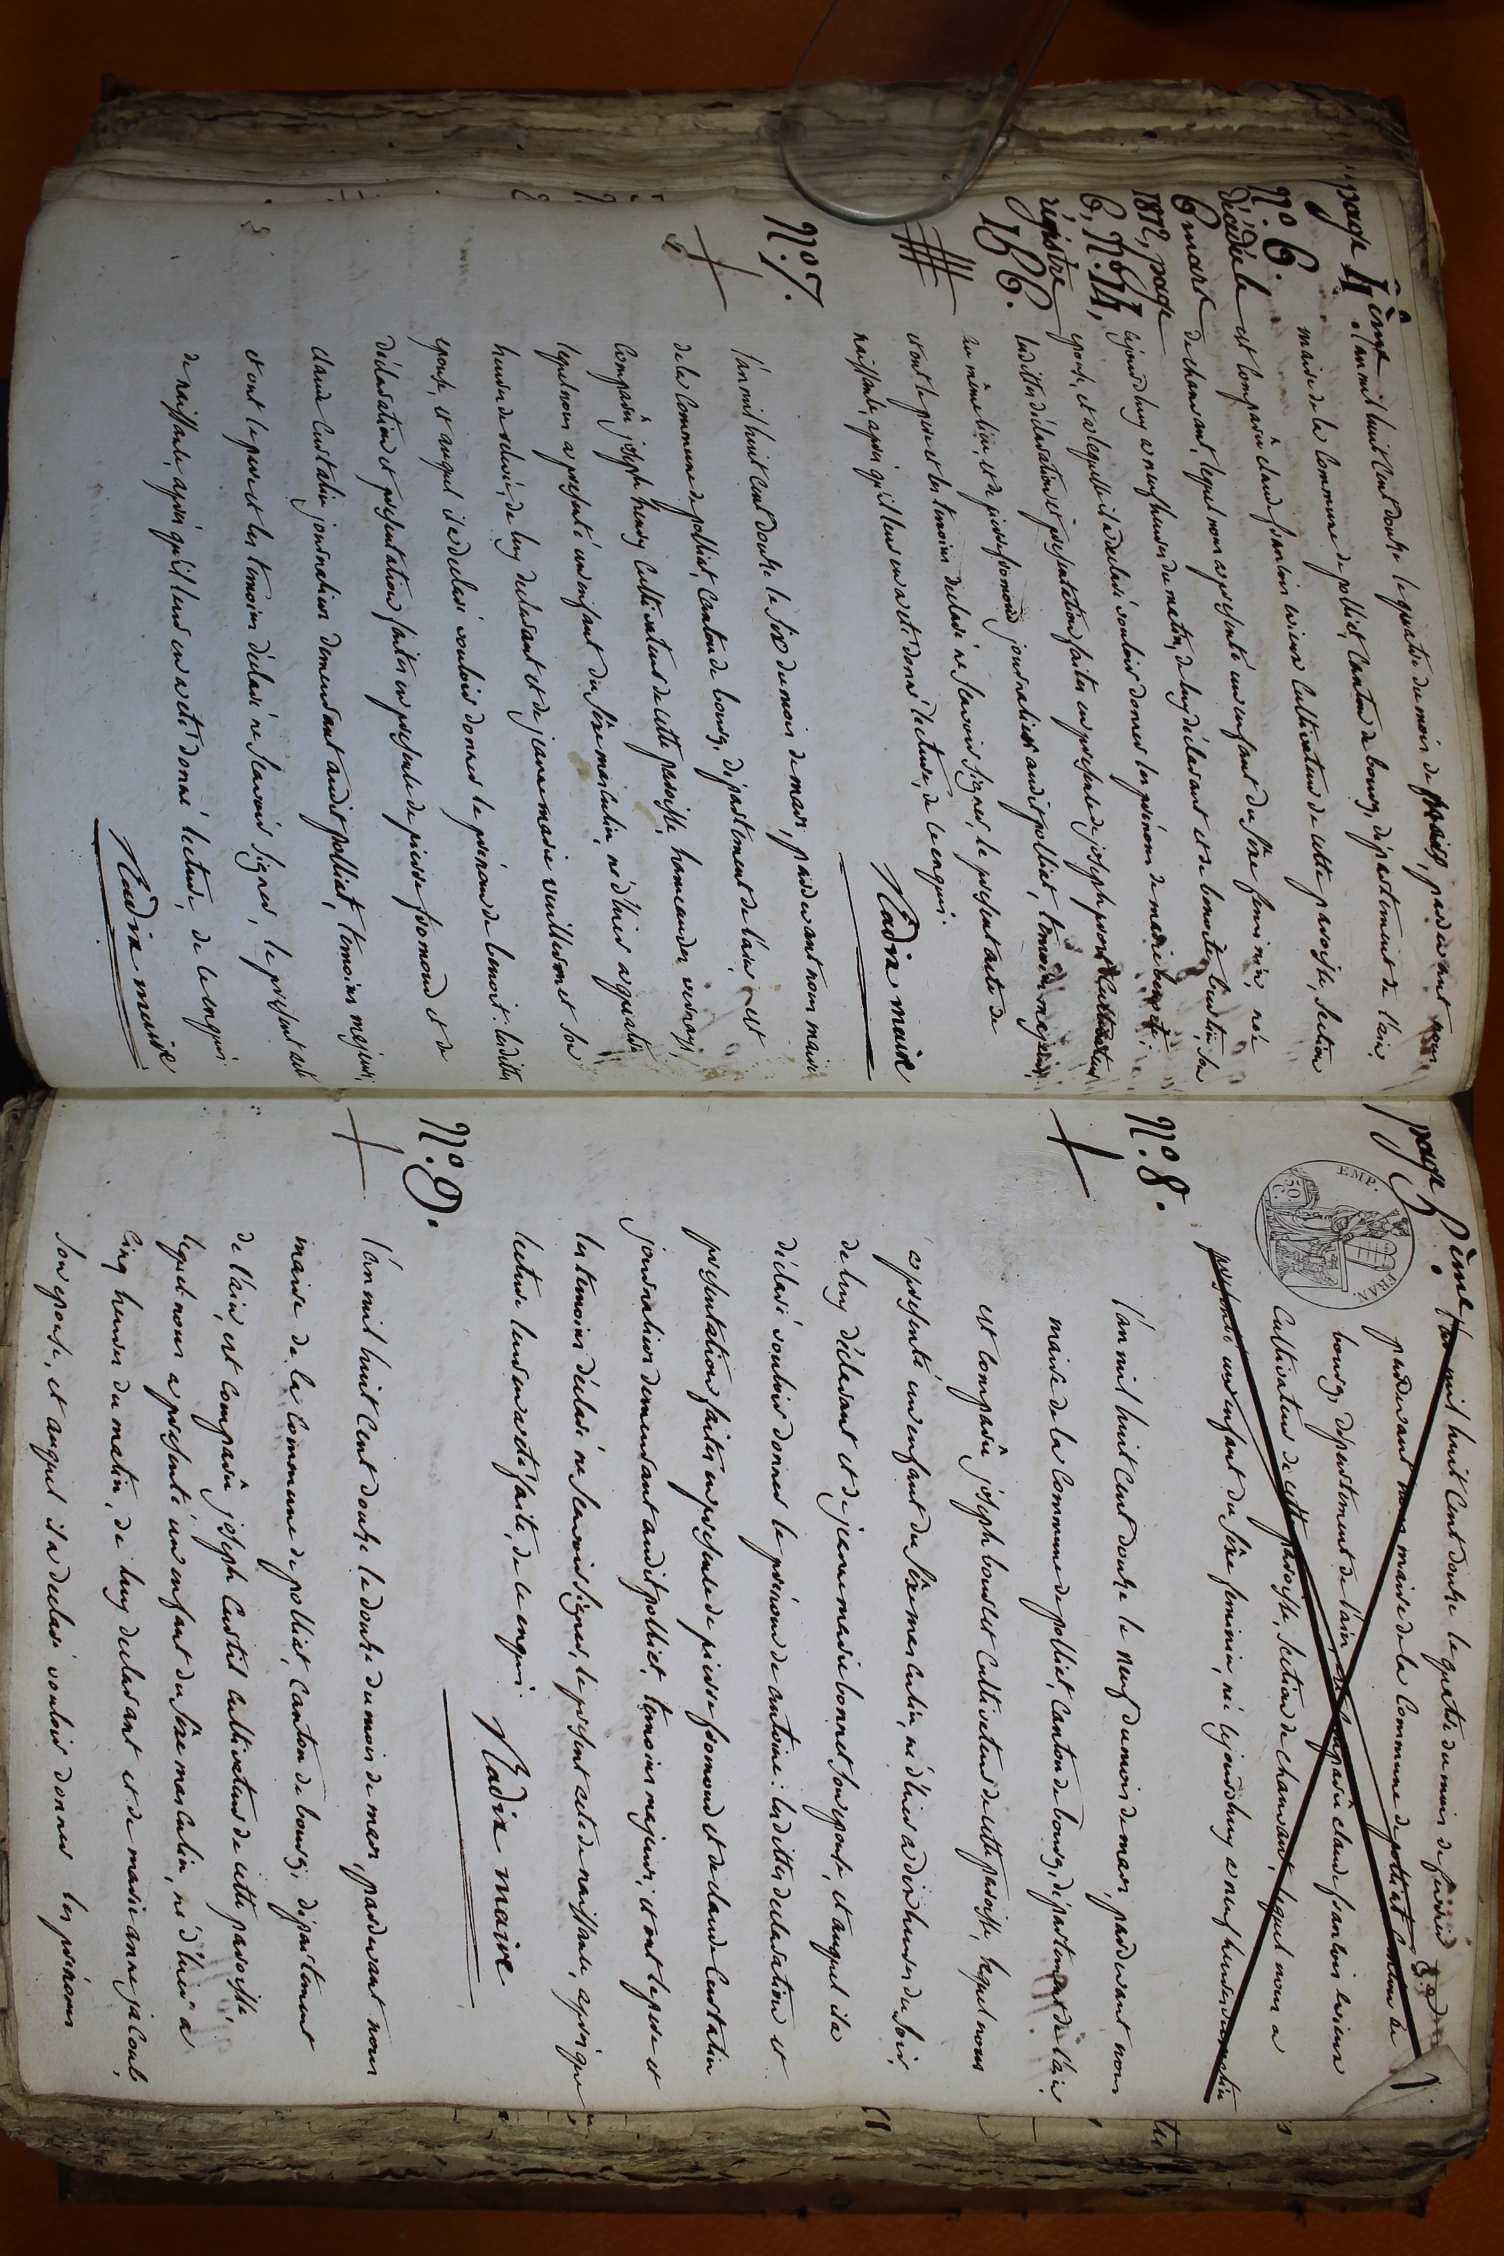 page 4ème
N° 6.
Décédée le
6 mars
1812, page
6, N° 14,
régistre
166.
l'an mil huit cent douze le quatre du mois de mars, pardevant nous
maire de la commune de polliat, canton de bourg, département de l'ain,
est comparû claude françois cultivateur de cette paroisse, section
de chamsant, lequel nous a présenté un enfant du sêxe feminin, née
cejourdhuy a neuf heures du matin, de luy déclarant et de benoite son
épouse, et a laquelle il a déclaré vouloir donner les prénoms de marie
lesdittes déclaration et présentation faites en présence de joseph cultivateur
au même lieu, et de pierre fromond journalier audit polliat, temoins majeurs,
et ont le pere et les temoins déclaré ne scavoir signer, le présent acte de
naissance, après qu'il leur en a eté donné lecture, de ce enquis.
Radix maire
N° 7.
l'an mil huit cent douze le six du mois de mars, pardevant nous maire
de la commune de polliat, canton de bourg, département de l'ain, est
comparû joseph cultivateur de cette paroisse, hameau des
lequel nous a présenté un enfant du sêxe masculin, né d'hier a quatre
heures de relevé, de luy déclarant et de jeanne marie son
épouse, et auquel il a déclaré vouloir donner le prénom de benoit: lesdittes
déclaration et présentation faites en présence de pierre fromond et de
claude curtalin journaliers demeurant audit polliat, temoins majeurs,
et ont le pere et les temoins déclaré ne scavoir signer, le présent acte
de naissance, après qu'il leur en a eté donné lecture, de ce enquis
Radix maire
page 5ème
EMP. FRAN.
50 C.
l'an mil huit cent douze le quatre du mois de
pardevant nous maire de la commune de polliat canton de
bourg, département de l'ain, est comparû claude françois
cultivateur de cette paroisse, section de chamsant, lequel nous a
présenté un enfant du sêxe feminin, né cejourdhuy a neuf heures du matin
N° 8.
l'an mil huit cent douze le neuf du mois de mars, pardevant nous
maire de la commune de polliat, canton de bourg, département de l'ain,
est comparû joseph cultivateur de cette paroisse, lequel nous
a présenté un enfant du sêxe masculin, né d'hier a dix heures du soir,
de luy déclarant et de jeanne marie bonnet son épouse, et auquel il a
déclaré vouloir donner le prénom de antoine: lesdittes déclaration et
présentation faites en présence de pierre fromond et de claude curtalin
journaliers demeurant audit polliat, temoins majeurs, et ont le pere et
les temoins déclaré ne scavoir signer, le présent acte de naissance, après que
lecture leur en a eté faite, de ce enquis.
Radix maire
N° 9.
l'an mil huit cent douze le douze du mois de mars, pardevant nous
maire de la commune de polliat, canton de bourg, département
de l'ain, est comparû joseph curtil cultivateur de cette paroisse,
lequel nous a présenté un enfant du sêxe masculin, né d'hier a
cinq heures du matin, de luy declarant et de marie anne
son épouse, et auquel il a déclaré vouloir donner les prénoms